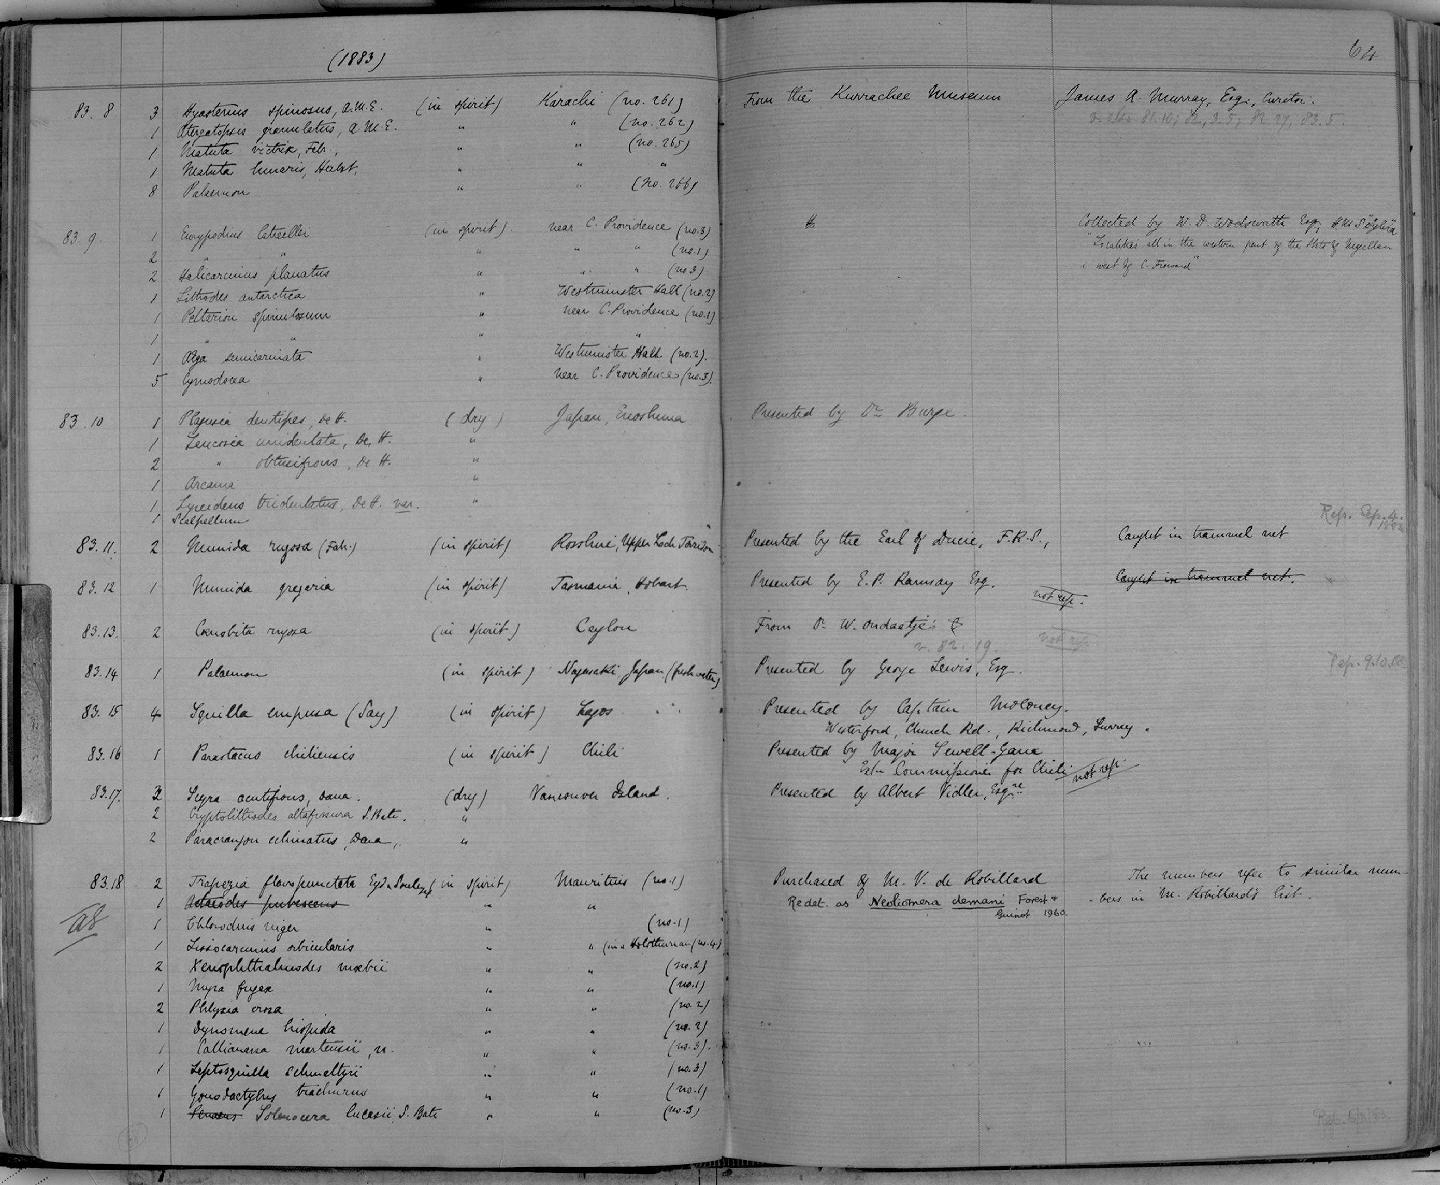 (1883)
64
83.8 3 Hyastenus spinosus, A.M.E. (in spirit) Karachi (no. 261) From the Kurrachee Museum James A. Murray, Esq., Curator.
1 granulatus, A.M.E. " " (no. 262)
1 Matuta victrix, Fab., " " (no. 265)
1 Matuta lunaris, Herbst, " " "
8 Palaemon " " (no. 266)
83.9. 1 Eurypodius latreillei (in spirit). near C. Providence (no. 3) Collected by W. D. Wodsworth Esq, H.M.S. "Sylvia"
2 " " " " " (no. 1) "Localities all in the western part of the Str. of Magellan
2 Halicarcinus planatus " " " (no 3) west of C. Froward"
1 Lithodes antarctica " Westminster Hall (no. 2)
1 Peltarion spinulosum " near C. Providence (no. 1)
1 " " " "
1 Aega semicarinata " Westminster Hall (no. 2).
5 Cymodocea " near C. Providence (no. 3).
83.10 1 Plagusia dentipes, De H. (dry) Japan, Enoshima Presented by Dr Burge.
1 Leucosia unidentata, De. H. "
2 " obtusifrons, De H. "
1 Arcania "
1 tridentatus, De H. var. "
1 Scalpellum
Rep. Sep. 4.
83.11. 2 Munida rugosa (Fab.) (in spirit) Upper Loch Torridon Presented by the Earl of Ducie, F.R.S., Caught in trammel net
83.12 1 Munida gregaria (in spirit) Tasmania, Hobart. Presented by E. P. Ramsay Esq. Caught in trammel net.
not rep.
83.13. 2 Coenobita rugosa (in spirit) Ceylon From Dr W. Ondaatje
v. 82. 19 not rep.
83.14 1 Palaemon (in spirit) Nagasaki, Japan (freshwater) Presented by George Lewis, Esq.
83.15 4 Squilla empusa (Say) (in spirit) Lagos Presented by Captain Moloney.
Waterford, Church Rd., Richmond, Surrey.
83.16 1 Parastacus chilensis (in spirit) Chili Presented by Major Sewell-Gana
Commissioner for Chili not rep.
83.17. 2 Scyra acutifrons, Dana. (dry) Vancouver Island. Presented by Albert Vidler, Esqre
2 Cryptolithodes altafissura S. Bate. "
2 Paracrangon echinatus, Dana, "
83.18 2 Trapezia flavopunctata Eyd & Souleyet (in spirit) Mauritius (no. 1) Purchased of M. V. de Robillard The numbers refer to similar num-
1 Actaeodes pubescens " " Redet. as Neoliomera demani Forest & -bers in M. Robillard's list.
Guinot 1960.
1 Chlorodius niger " (no. 1)
1 Lissocarcinus orbicularis " " (in a Holothurian (no. 4)
2 Xenophthalmodes moebii " " (no. 2)
1 Myra fugax " " (no. 1)
2 Phlyxia erosa " " (no. 2)
1 Dynomene hispida " " (no. 2)
1 Callianassa martensii, n. " " (no. 3).
1 Leptosquilla schmeltzii " " (no. 3)
1 Gonodactylus trachurus " " (no. 1)
1 Penaeus Solenocera lucasii, S. Bate " " (no. 3)